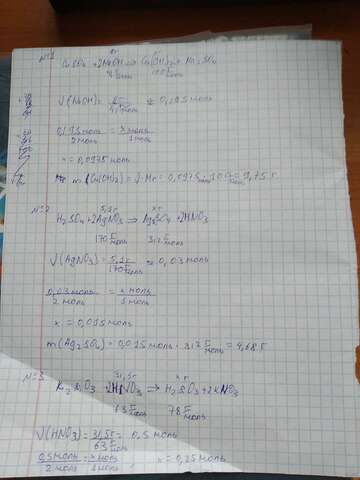 N=1
8г xг
CuSO₄ + 2NaOH ⇒ Cu(OH)₂ + Na₂SO₄
г/моль г/моль
√(NaOH) = 8г ≈ 0,195 моль
0,195 моль / 2 моль = x моль / 1 моль
x = 0,0975 моль
m (Cu(OH)₂) = √·Mr = 0,0975 · 100 = 9,75 г
N=2
5,1г xг
H₂SO₄ + 2AgNO₃ ⇒ Ag₂SO₄ + 2HNO₃
170 г/моль 312 г/моль
√(AgNO₃) = 5,1г / 170 г/моль ≈ 0,03 моль
0,03 моль / 2 моль = x моль / 1 моль
x = 0,015 моль
m(Ag₂SO₄) = 0,015 моль · 312 г/моль = 4,68 г
N=3
31,5г xг
+ 2HNO₃ ⇒ H₂SiO₃ + 2KNO₃
63 г/моль 78 г/моль
√(HNO₃) = 31,5г / 63 г/моль = 0,5 моль
0,5 моль / 2 моль = x моль / 1 моль x = 0,25 моль